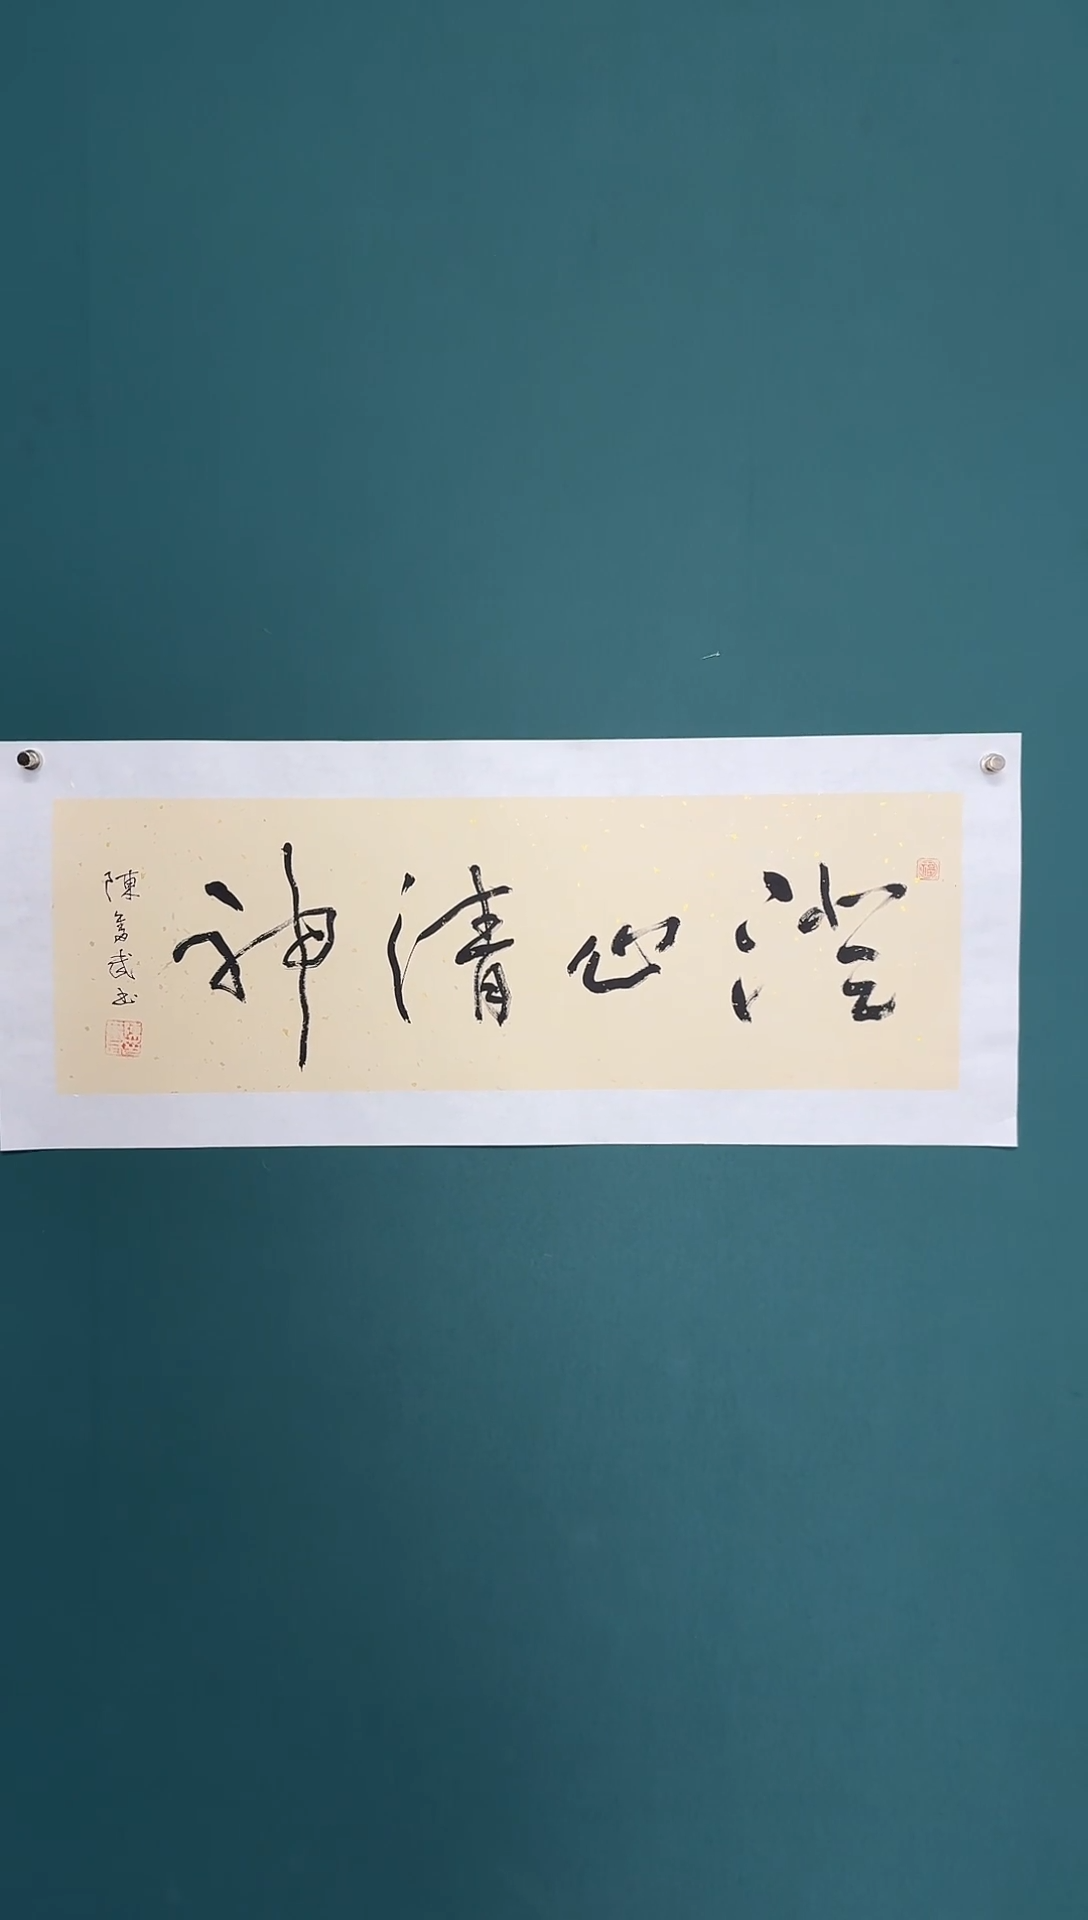 澄心清神
陳 武书